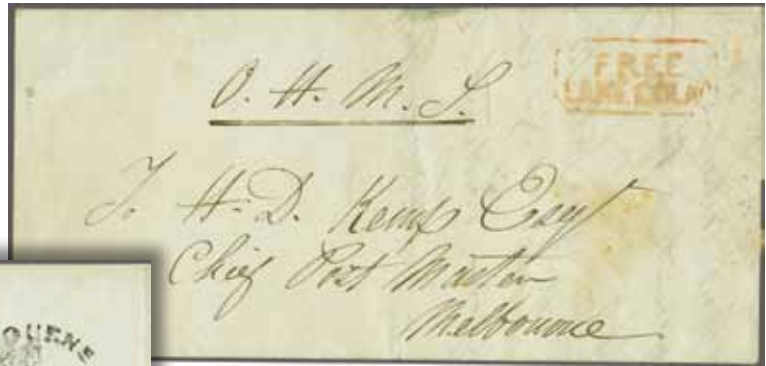 O. H. M. S.
FREE
LAKE COLAC
J. H. D. Kemp Esqr
Chief Post Master
Melbourne
OURNE